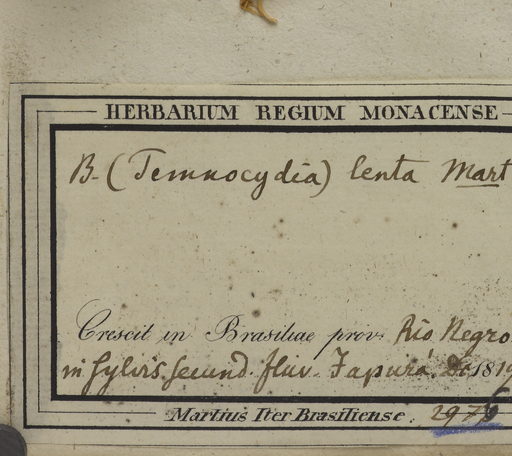 HERBARIUM REGIUM MONACENSE
B. (Temnocydia) lenta Mart
Crescit in Brasiliae prov. Rio Negro
in sylvis secund. fluv. Japurá. 1819
Martius Iter Brasiliense.